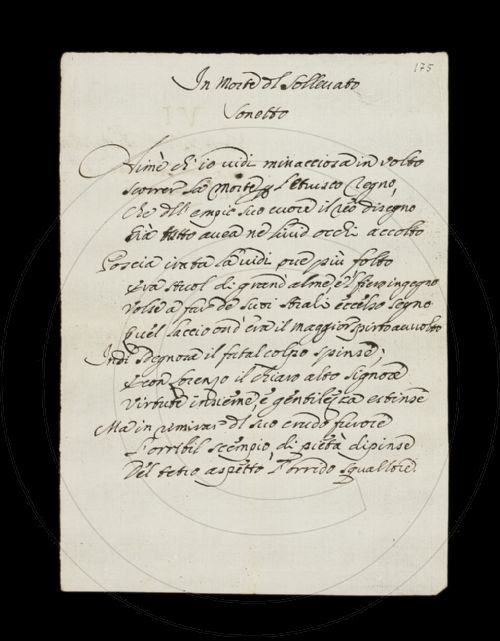 175
In Morte dl Sollevato
Sonetto
Aimè ch' io vidi minacciosa in volto
Scorrer la Morte l'Etrusco Regno,
Che dll' empio suo cuore il reo disegno
Già tutto avea ne' lividi occhi accolto
Poscia irata la vidi ove più folto
Era stuol di grand' alme, e fiero ingegno
Volse a far de suoi strali eccelso segno
Quel laccio ond' era il maggior spirto avvolto
Indi sdegnosa il fatal colpo spinse;
E con Lorenzo il chiaro alto Signore
Virtute insieme, e gentilezza estinse
Ma in rimirar dl suo crudo furore
L'orribil scempio, di pietà dipinse
Del tetro aspetto, l'orrido squallore.